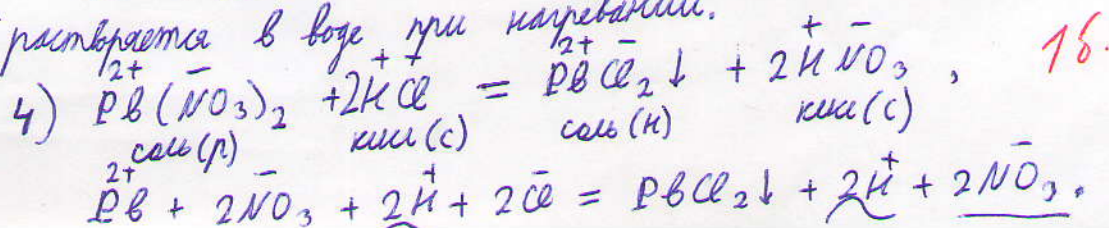 растворяется в воде при нагревании.
4) Pb²⁺(NO₃⁻)₂ + 2H⁺Cl⁻ = Pb²⁺Cl₂⁻↓ + 2H⁺NO₃⁻, 1б.
соль (р) кисл (с) соль (н) кисл (с)
Pb²⁺ + 2NO₃⁻ + 2H⁺ + 2Cl⁻ = PbCl₂↓ + 2H⁺ + 2NO₃⁻.